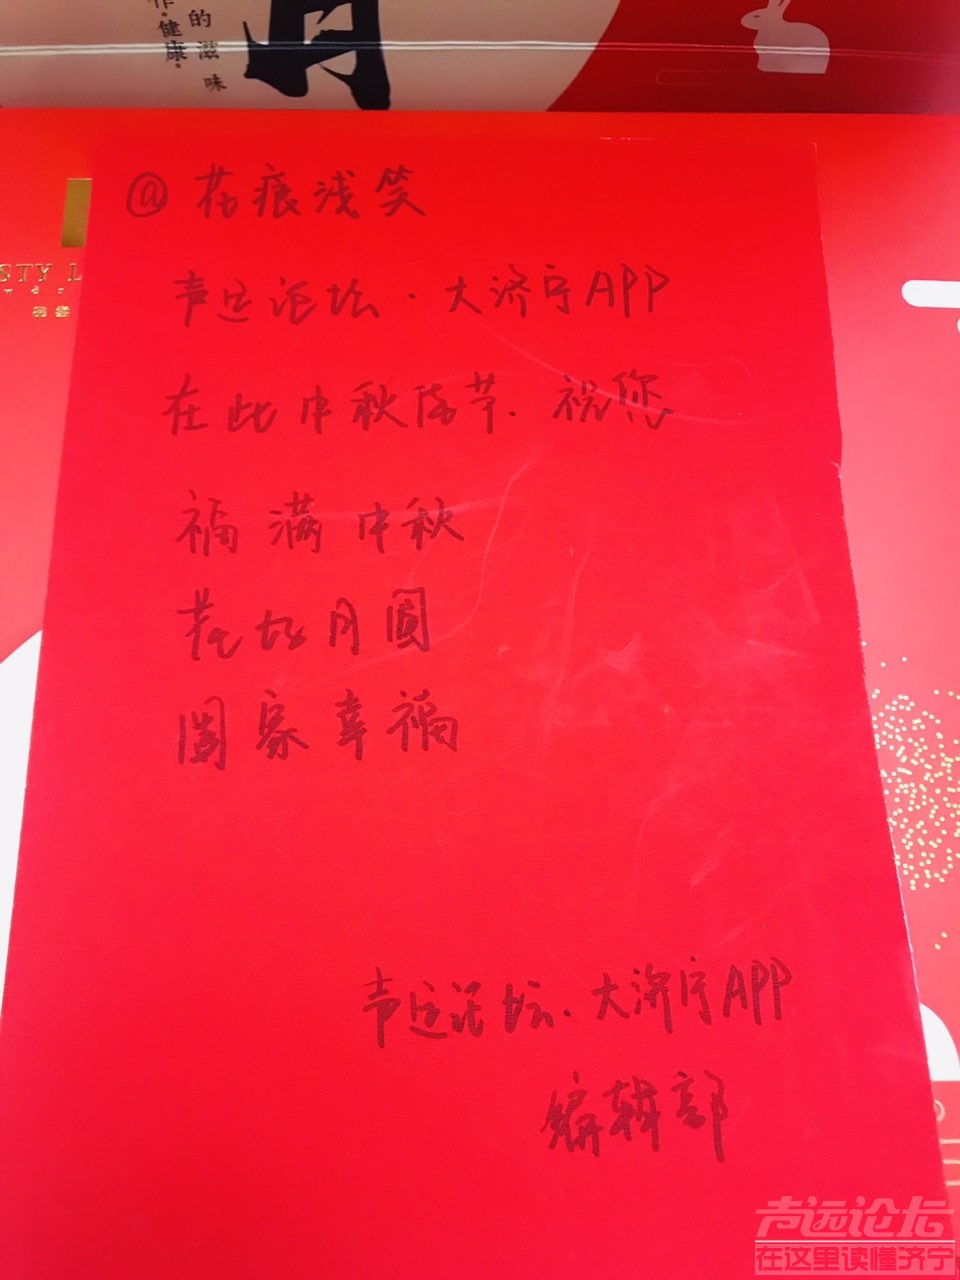 的滋味
作·健康。
月
@花痕浅笑
STY L
声远论坛·大济宁APP
在此中秋佳节，祝您
福满中秋
花好月圆
阖家幸福
声远论坛·大济宁APP
编辑部
声远论坛
在这里读懂济宁